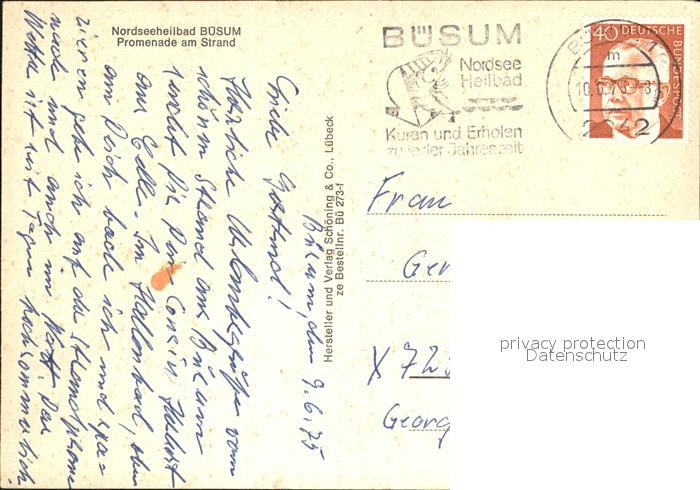 Nordseeheilbad BÜSUM
Promenade am Strand
BÜSUM
Nordsee
Heilbad
Kuren und Erholen
zu jeder Jahreszeit
10.6.75
2242
40 DEUTSCHE
BUNDESPOST
Hersteller und Verlag Schöning & Co., Lübeck
ze Bestellnr. Bü 273-f
Büsum, den 9.6.75
Liebe
Herzliche Urlaubsgrüße vom
schönen Strand aus Büsum
sendet Dir Dein Cousin
aus Celle. Im Hallenbad, oben
am Deich bade ich und spa-
zieren gehe ich auf der Strandprome
nade und auch im Watt. Das
Wetter ist seit Tagen hochsommerlich.
Frau
Ger
X 72
Georg
privacy protection
Datenschutz